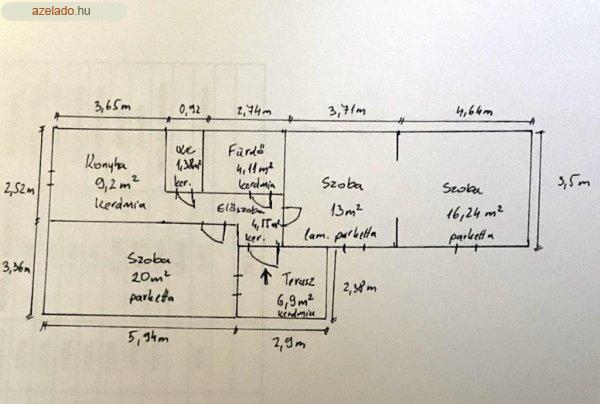 azelado.hu
3,65m
0,92
2,74m
3,71m
4,64m
2,52m
3,36m
3,5m
Konyha
9,2m²
kerdmia
WC
1,38m²
ker.
Fürdő
4,11m²
kerdmia
Előszoba
ker.
Szoba
13m²
lam. parketta
Szoba
16,24m²
parketta
Szoba
20m²
parketta
Terasz
6,9m²
kerdmia
2,38m
5,94m
2,9m